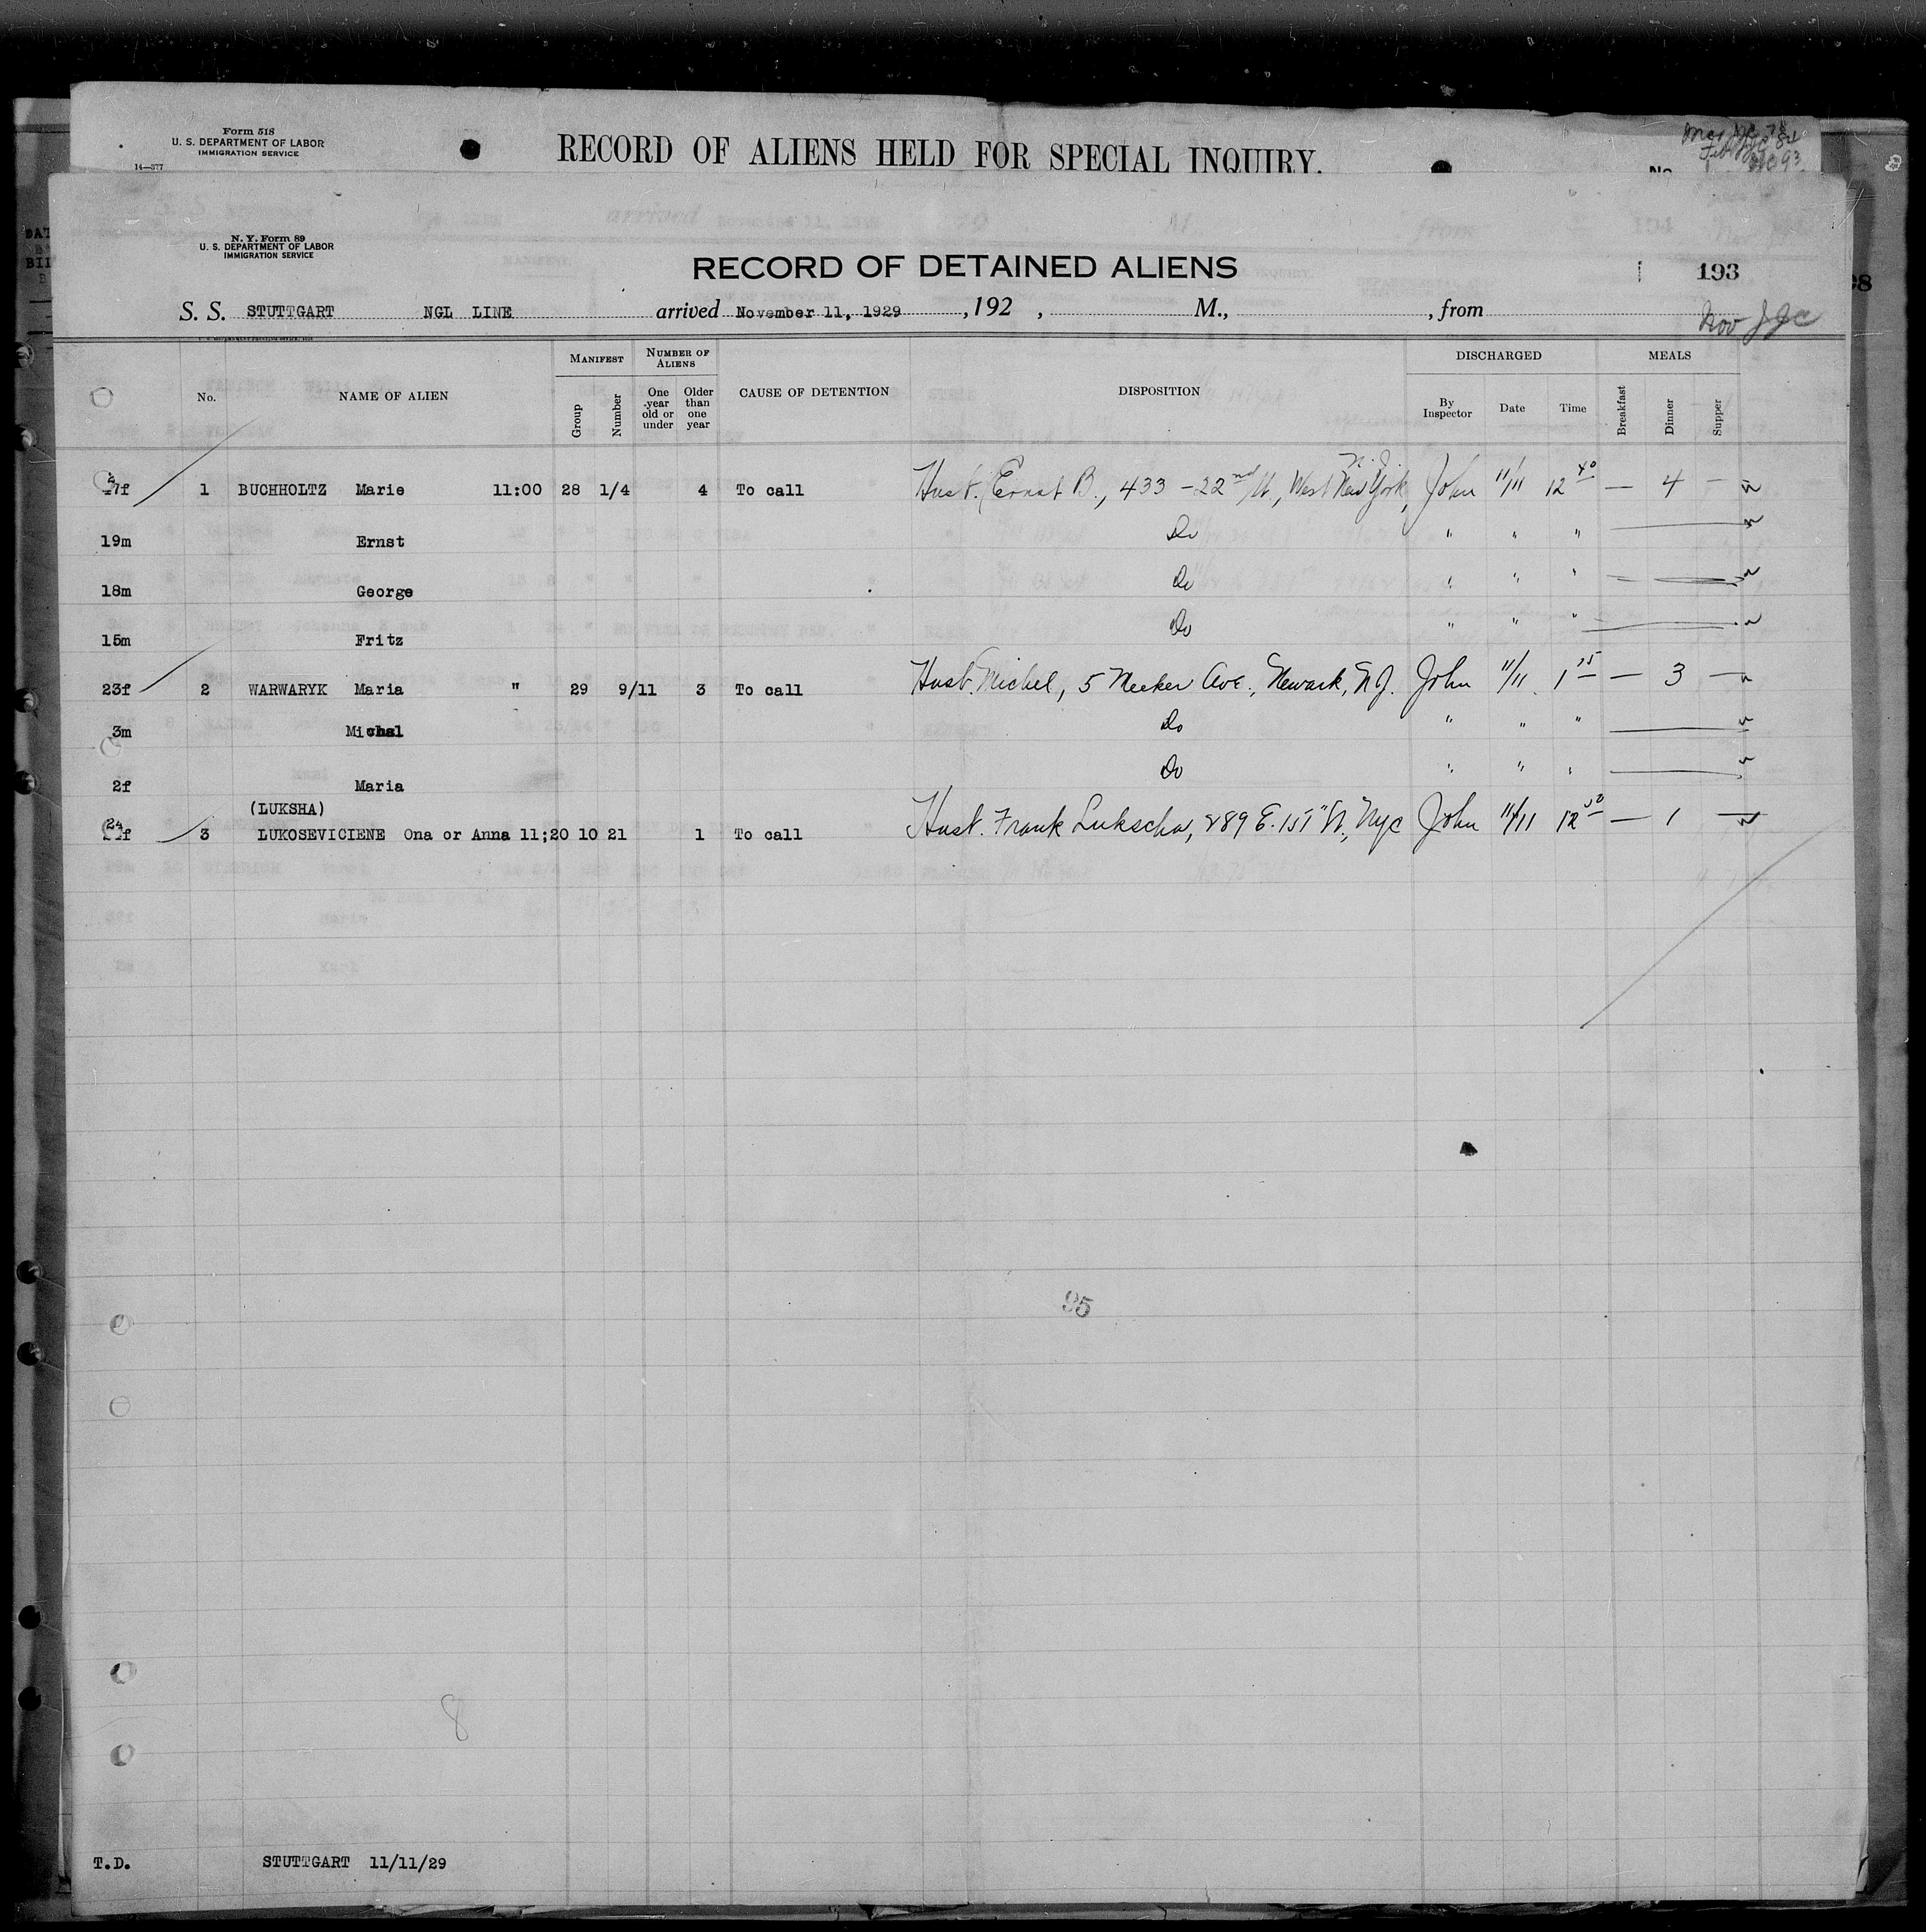 Form 518
U. S. DEPARTMENT OF LABOR
IMMIGRATION SERVICE
14—377
RECORD OF ALIENS HELD FOR SPECIAL INQUIRY.
No
N. Y. Form 89
U. S. DEPARTMENT OF LABOR
IMMIGRATION SERVICE
RECORD OF DETAINED ALIENS
193
S. S. STUTTGART NGL LINE arrived November 11, 1929, 192 , M., , from
Nov JJC
No. NAME OF ALIEN MANIFEST Group Number NUMBER OF ALIENS One year old or under Older than one year CAUSE OF DETENTION DISPOSITION DISCHARGED By Inspector Date Time MEALS Breakfast Dinner Supper
N.J.
1 BUCHHOLTZ Marie 11:00 28 1/4 4 To call Husb. Ernst B., 433 - 22nd St., West New York, John 11/11 12 40 — 4 —
19m Ernst Do " " "
18m George Do " " "
15m Fritz Do " " "
23f 2 WARWARYK Maria " 29 9/11 3 To call Husb. Michel, 5 Meeker Ave., Newark, N.J. John 11/11 1 15 — 3 —
3m Michal Do " " "
2f Maria Do " " "
(LUKSHA)
24f 3 LUKOSEVICIENE Ona or Anna 11;20 10 21 1 To call Husb. Frank Lukscha, 289 E. 151" St., Nyc John 11/11 12 50 — 1 —
95
8
T.D. STUTTGART 11/11/29